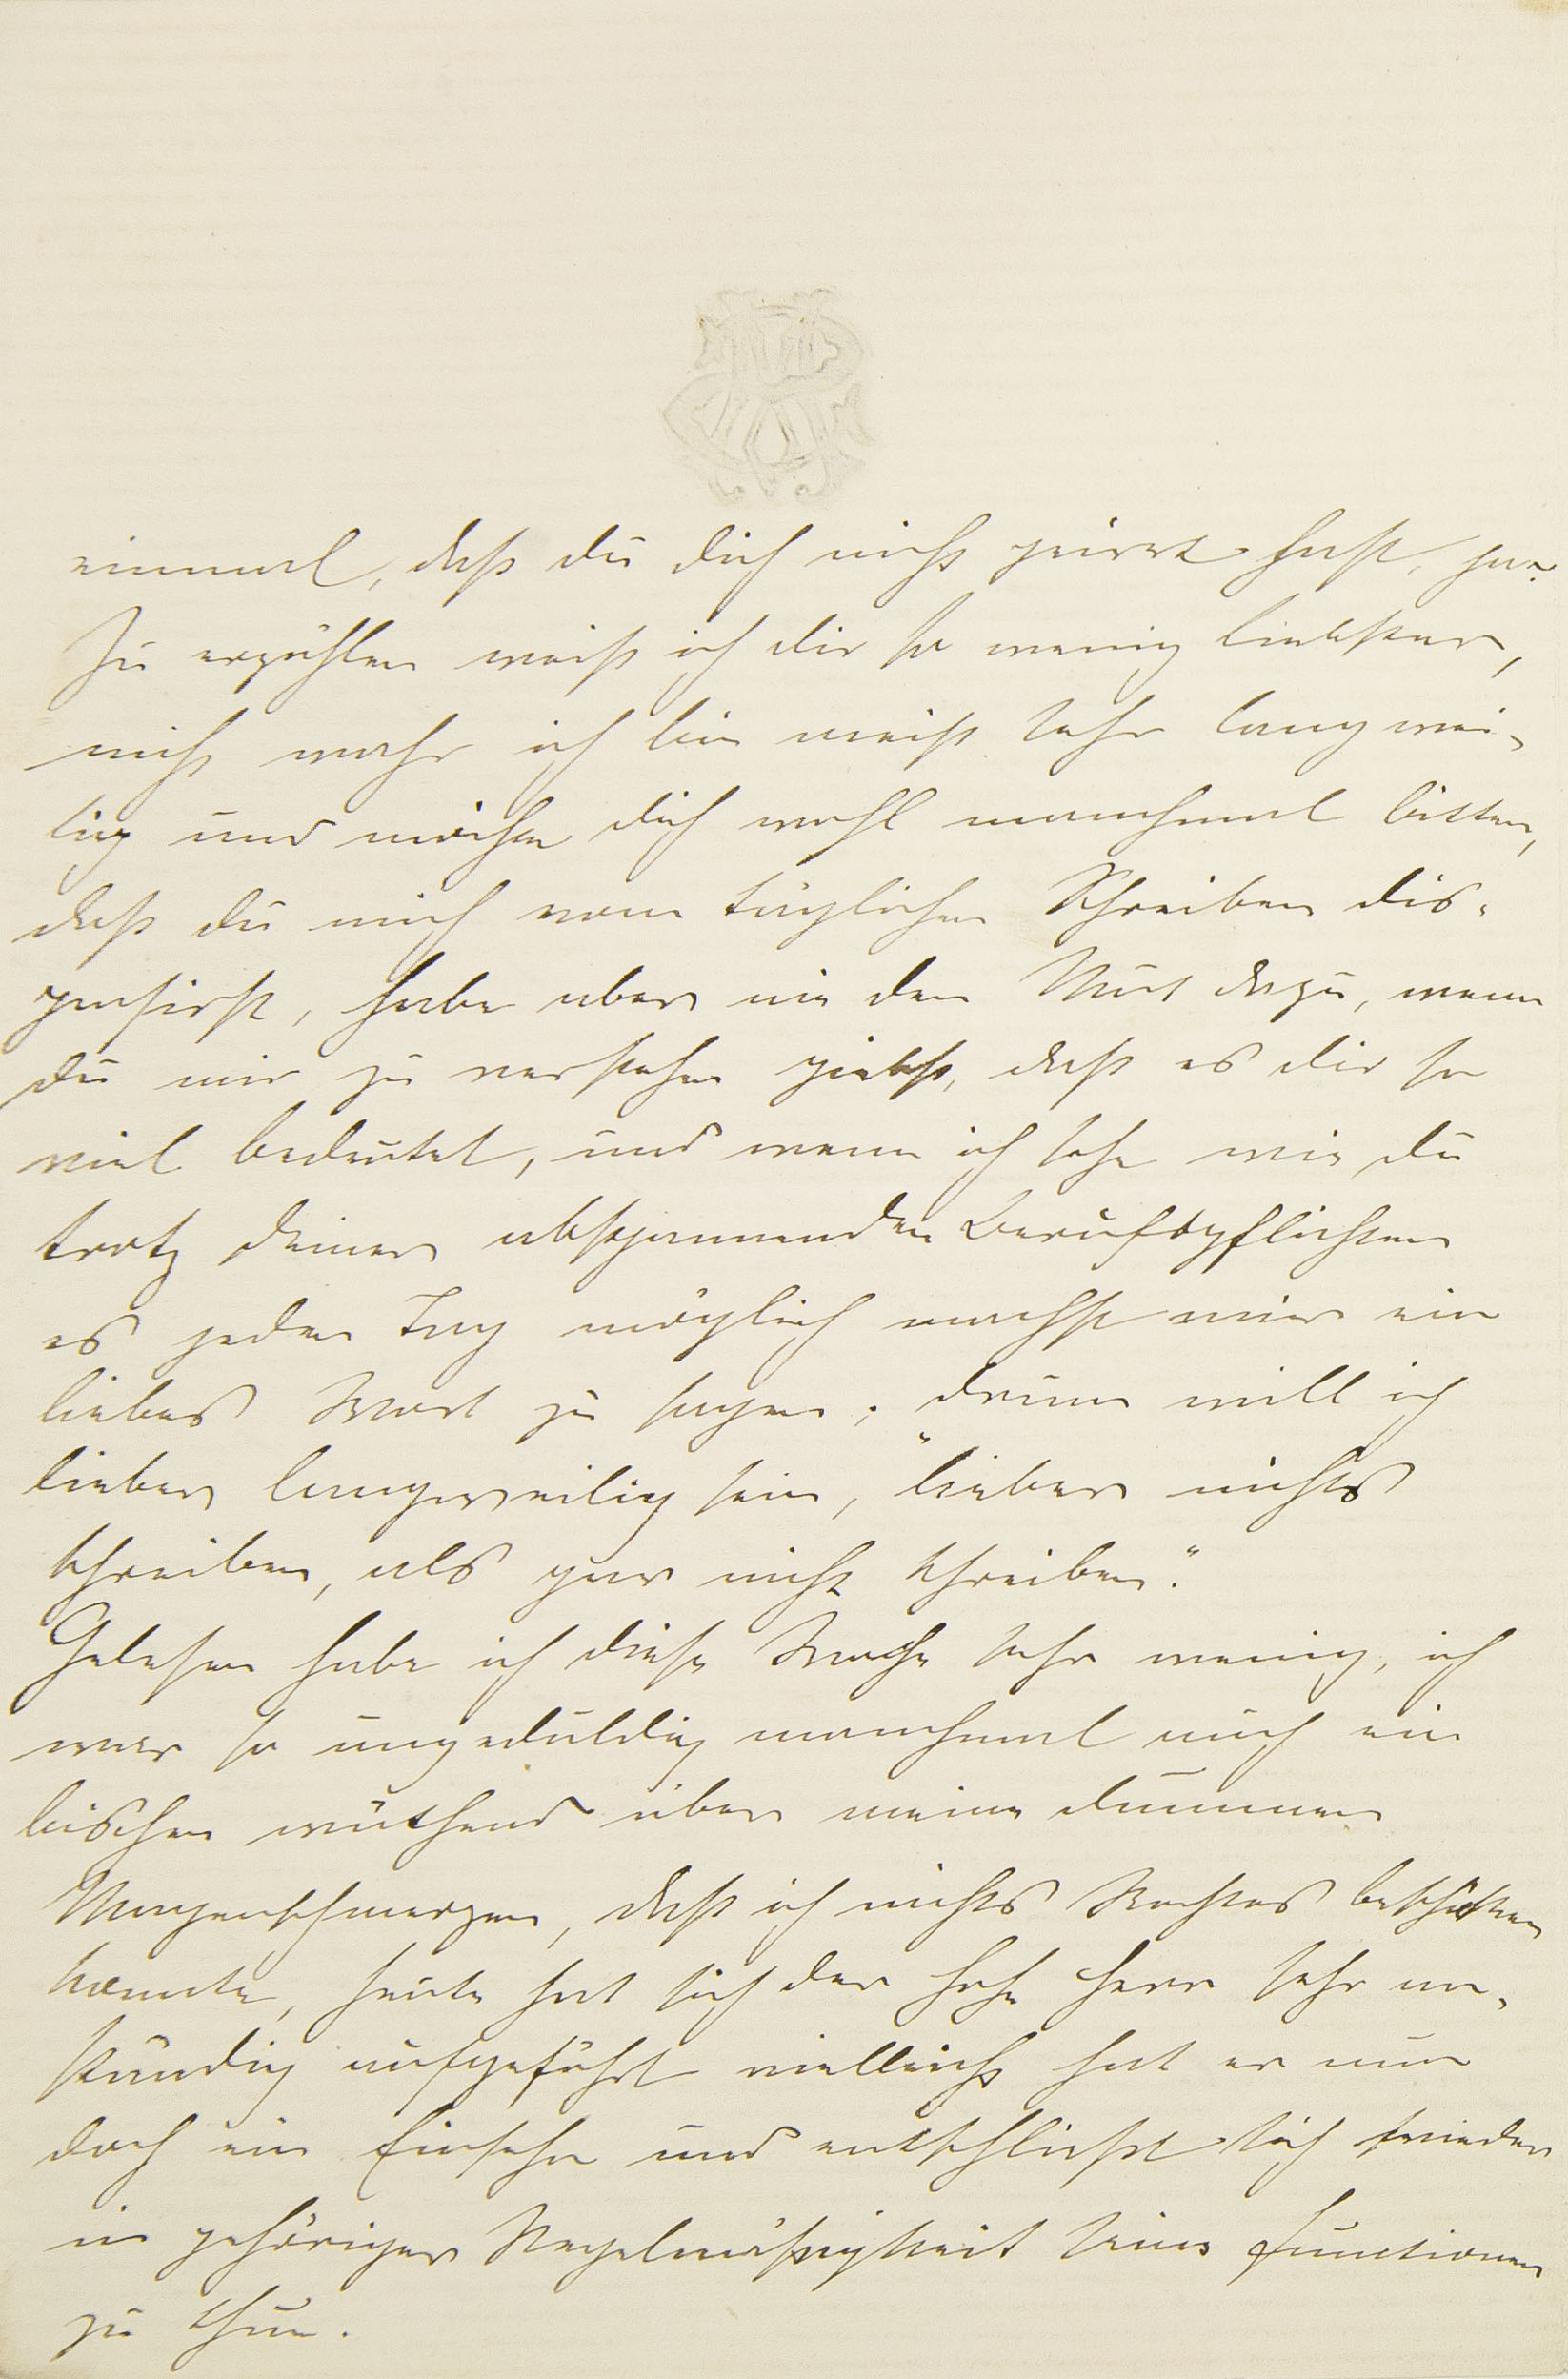 einmal, daß du dich nicht geirrt hast, ja?
Zu erzählen weiß ich dir so wenig Liebster,
nicht wahr ich bin meist sehr langwei-
lig und möchte dich wohl manchmal bitten,
daß du mich vom täglichen Schreiben dis-
pensirst, habe aber nie den Mut dazu, wenn
du mir zu verstehen giebst, daß es dir so
viel bedeutet, und wenn ich sehe wie du
trotz deiner abspannenden Berufspflichten
es jeden Tag möglich machst mir ein
liebes Wort zu sagen; drum will ich
lieber langweilig sein, "lieber nichts
schreiben, als gar nicht schreiben."
Gelesen habe ich diese Woche sehr wenig, ich
war so ungeduldig manchmal auch ein
bischen wüthend über meine dummen
Magenschmerzen, daß ich nichts Rechtes
konnte, heute hat sich der hohe Herr sehr an-
ständig aufgeführt vielleicht hat er nun
doch ein Einsehn und entschließt sich wieder
in gehöriger Regelmäßigkeit seine Functionen
zu thun.